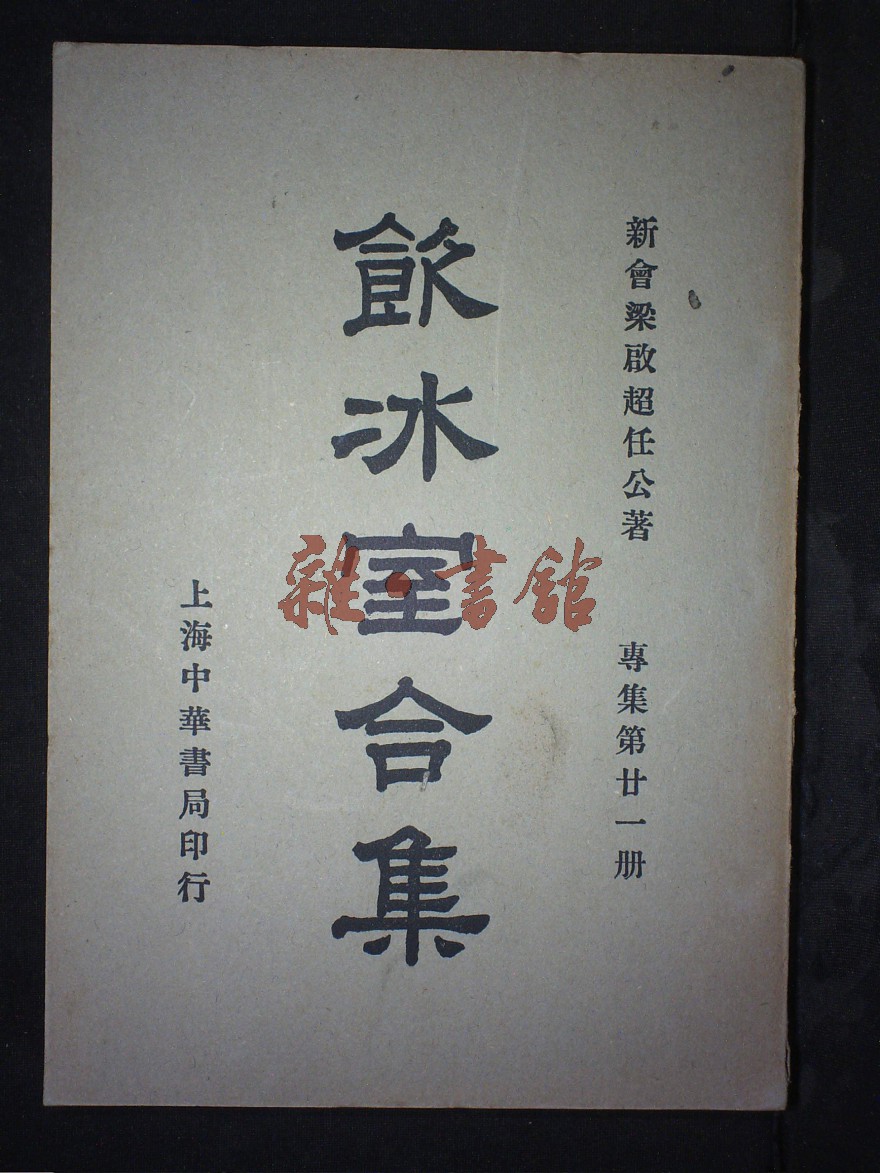 新會梁啟超任公著
專集第廿一册
飲冰室合集
雜·書館
上海中華書局印行